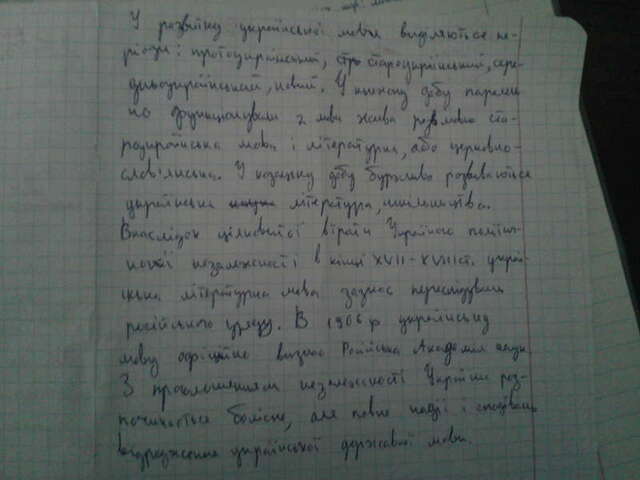 У розвитку української мови виділяються пе-
ріоди: протоукраїнський, стр староукраїнський, сере-
дньоукраїнський, новий. У княжу добу паралель
но функціонували 2 мови жива розмовна ста-
роукраїнська мова і літературна, або церковно-
слов'янська. У козацьку добу бурхливо розвиваються
українська література, шкільництво.
Внаслідок цілковитої втрати Україною політич-
ної незалежності в кінці XVII-XVIII ст. україн-
ська літературна мова зазнає переслідувань
російського уряду. В 1906 р українську
мову офіційно визнає Російська Академія наук.
З проголошенням незалежності України роз-
починається болісне, але повне надії і сподівань
відродження української державної мови.